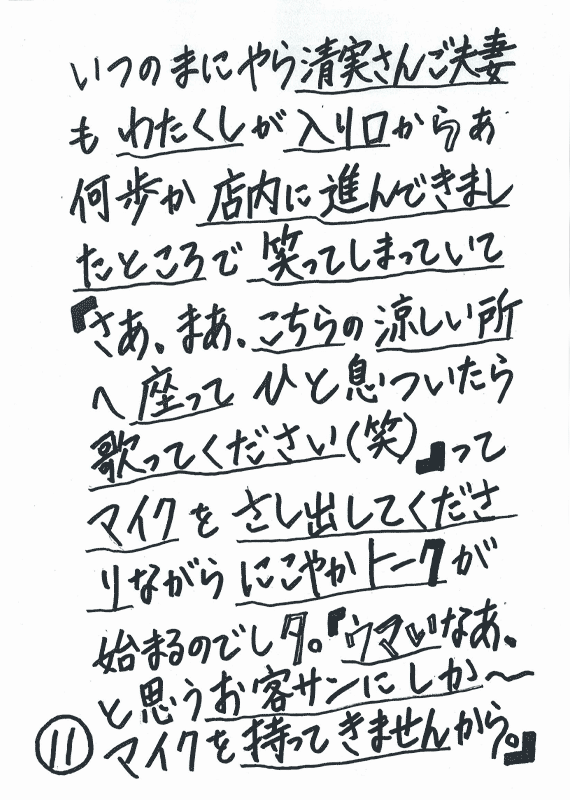 いつのまにやら清実さんご夫妻
も わたくしが 入り口からぁ
何歩か 店内に 進んできまし
たところで 笑ってしまっていて
『さあ、まあ、こちらの 涼しい所
へ 座って ひと息ついたら
歌ってください(笑)』って
マイクを さし出してくださ
りながら にこやかトークが
始まるのでしタ。『ウマいなあ、
と思うお客サンにしか〜
マイクを持ってきませんから。』
11